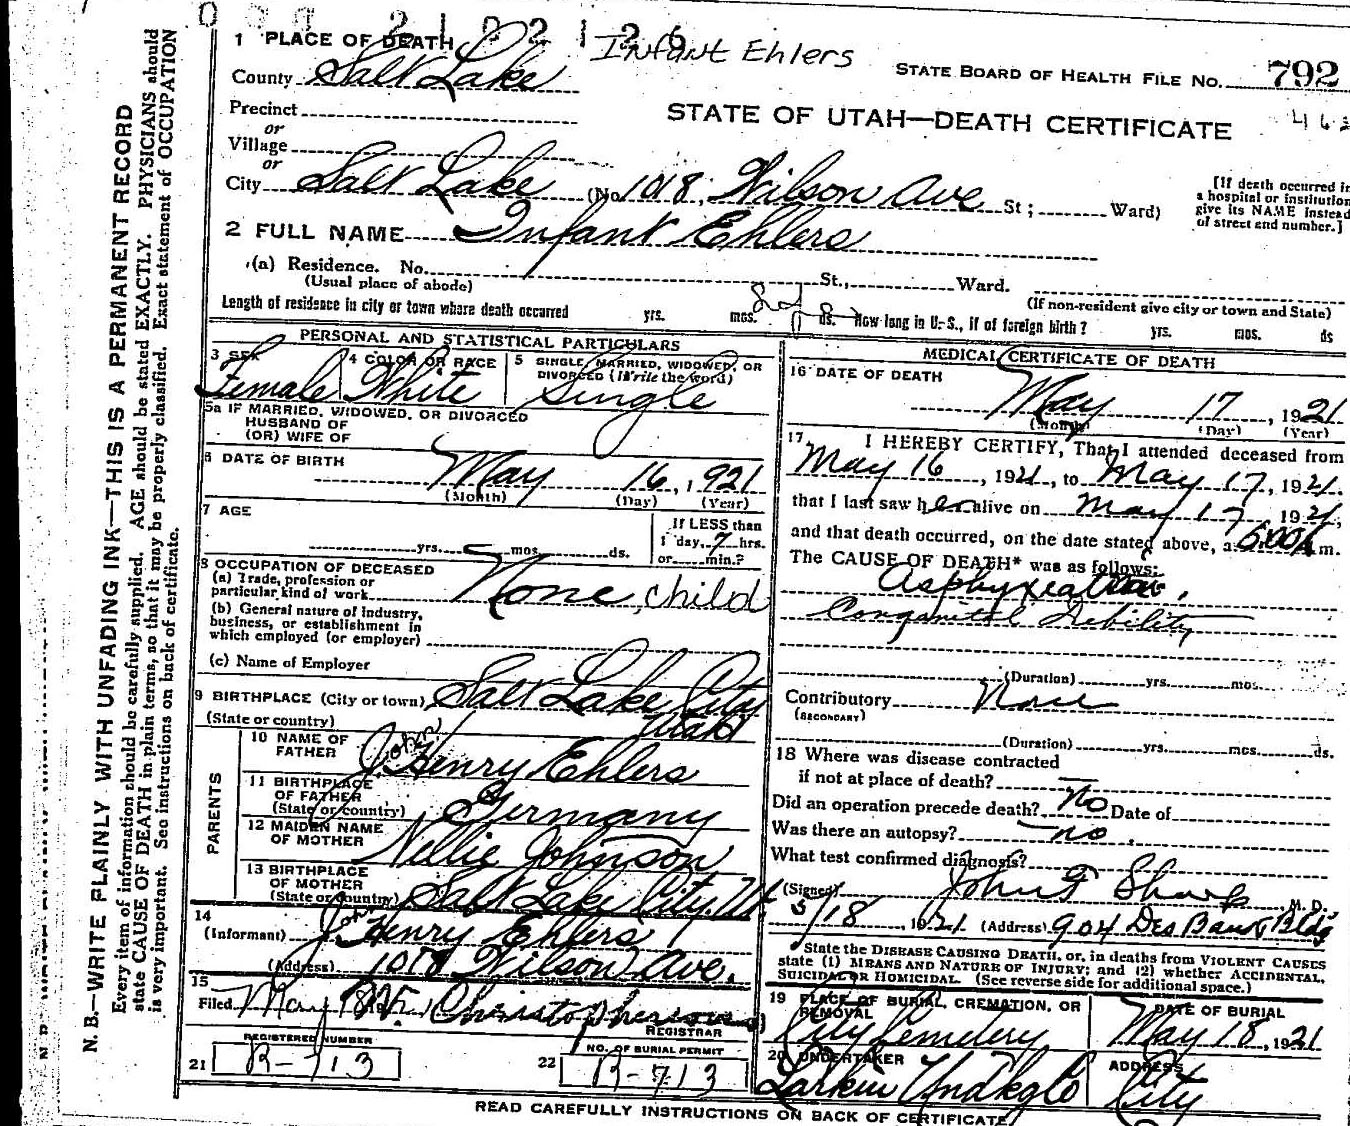 2 1 0 2 1 2 6
1 PLACE OF DEATH
Infant Ehlers
STATE BOARD OF HEALTH FILE NO. 792
County Salt Lake
Precinct
STATE OF UTAH—DEATH CERTIFICATE
or
Village
or
City Salt Lake (No. 1018 Wilson Ave St; Ward)
[If death occurred in
a hospital or institution
give its NAME instead
of street and number.]
2 FULL NAME Infant Ehlers
(a) Residence. No. St., Ward.
(Usual place of abode) (If non-resident give city or town and State)
Length of residence in city or town where death occurred yrs. mos. ds. How long in U.S., if of foreign birth? yrs. mos. ds
PERSONAL AND STATISTICAL PARTICULARS
3 SEX 4 COLOR OR RACE 5 SINGLE, MARRIED, WIDOWED, OR
DIVORCED (Write the word)
Female White Single
5a IF MARRIED, WIDOWED, OR DIVORCED
HUSBAND OF
(OR) WIFE OF
6 DATE OF BIRTH
May 16, 1921
(Month) (Day) (Year)
7 AGE
yrs. mos. ds.
If LESS than
1 day, 7 hrs.
or min.?
8 OCCUPATION OF DECEASED
(a) Trade, profession or
particular kind of work None, child
(b) General nature of industry,
business, or establishment in
which employed (or employer)
(c) Name of Employer
9 BIRTHPLACE (City or town) Salt Lake City
(State or country) Utah
PARENTS
10 NAME OF
FATHER John Henry Ehlers
11 BIRTHPLACE
OF FATHER
(State or country) Germany
12 MAIDEN NAME
OF MOTHER Nellie Johnson
13 BIRTHPLACE
OF MOTHER
(State or country) Salt Lake City, Ut
14
(Informant) John Henry Ehlers
(Address) 1018 Wilson Ave.
15
Filed May 18 Christophersons
REGISTRAR
REGISTERED NUMBER
21 R-713
NO. OF BURIAL PERMIT
22 R-713
MEDICAL CERTIFICATE OF DEATH
16 DATE OF DEATH
May 17, 1921
(Month) (Day) (Year)
17 I HEREBY CERTIFY, That I attended deceased from
May 16, 1921, to May 17, 1921.
that I last saw her alive on May 17 1921,
and that death occurred, on the date stated above, at 6:00 A m.
The CAUSE OF DEATH* was as follows:
Asphyxiation.
Congenital Debility
(Duration) yrs. mos.
Contributory None
(SECONDARY)
(Duration) yrs. mos. ds.
18 Where was disease contracted
if not at place of death?
Did an operation precede death? no Date of
Was there an autopsy? no.
What test confirmed diagnosis?
(Signed) John F Sharp, M. D.
5/18 1921 (Address) 904 Des Bank Bldg
State the DISEASE CAUSING DEATH, or, in deaths from VIOLENT CAUSES
state (1) MEANS AND NATURE OF INJURY; and (2) whether ACCIDENTAL,
SUICIDAL OR HOMICIDAL. (See reverse side for additional space.)
19 PLACE OF BURIAL, CREMATION, OR
REMOVAL
City Cemetery
DATE OF BURIAL
May 18, 1921
20 UNDERTAKER
Larkin Undktg Co
ADDRESS
City
READ CAREFULLY INSTRUCTIONS ON BACK OF CERTIFICATE
N. B.—WRITE PLAINLY WITH UNFADING INK—THIS IS A PERMANENT RECORD
Every item of information should be carefully supplied. AGE should be stated EXACTLY. PHYSICIANS should
state CAUSE OF DEATH in plain terms, so that it may be properly classified. Exact statement of OCCUPATION
is very important. See instructions on back of certificate.